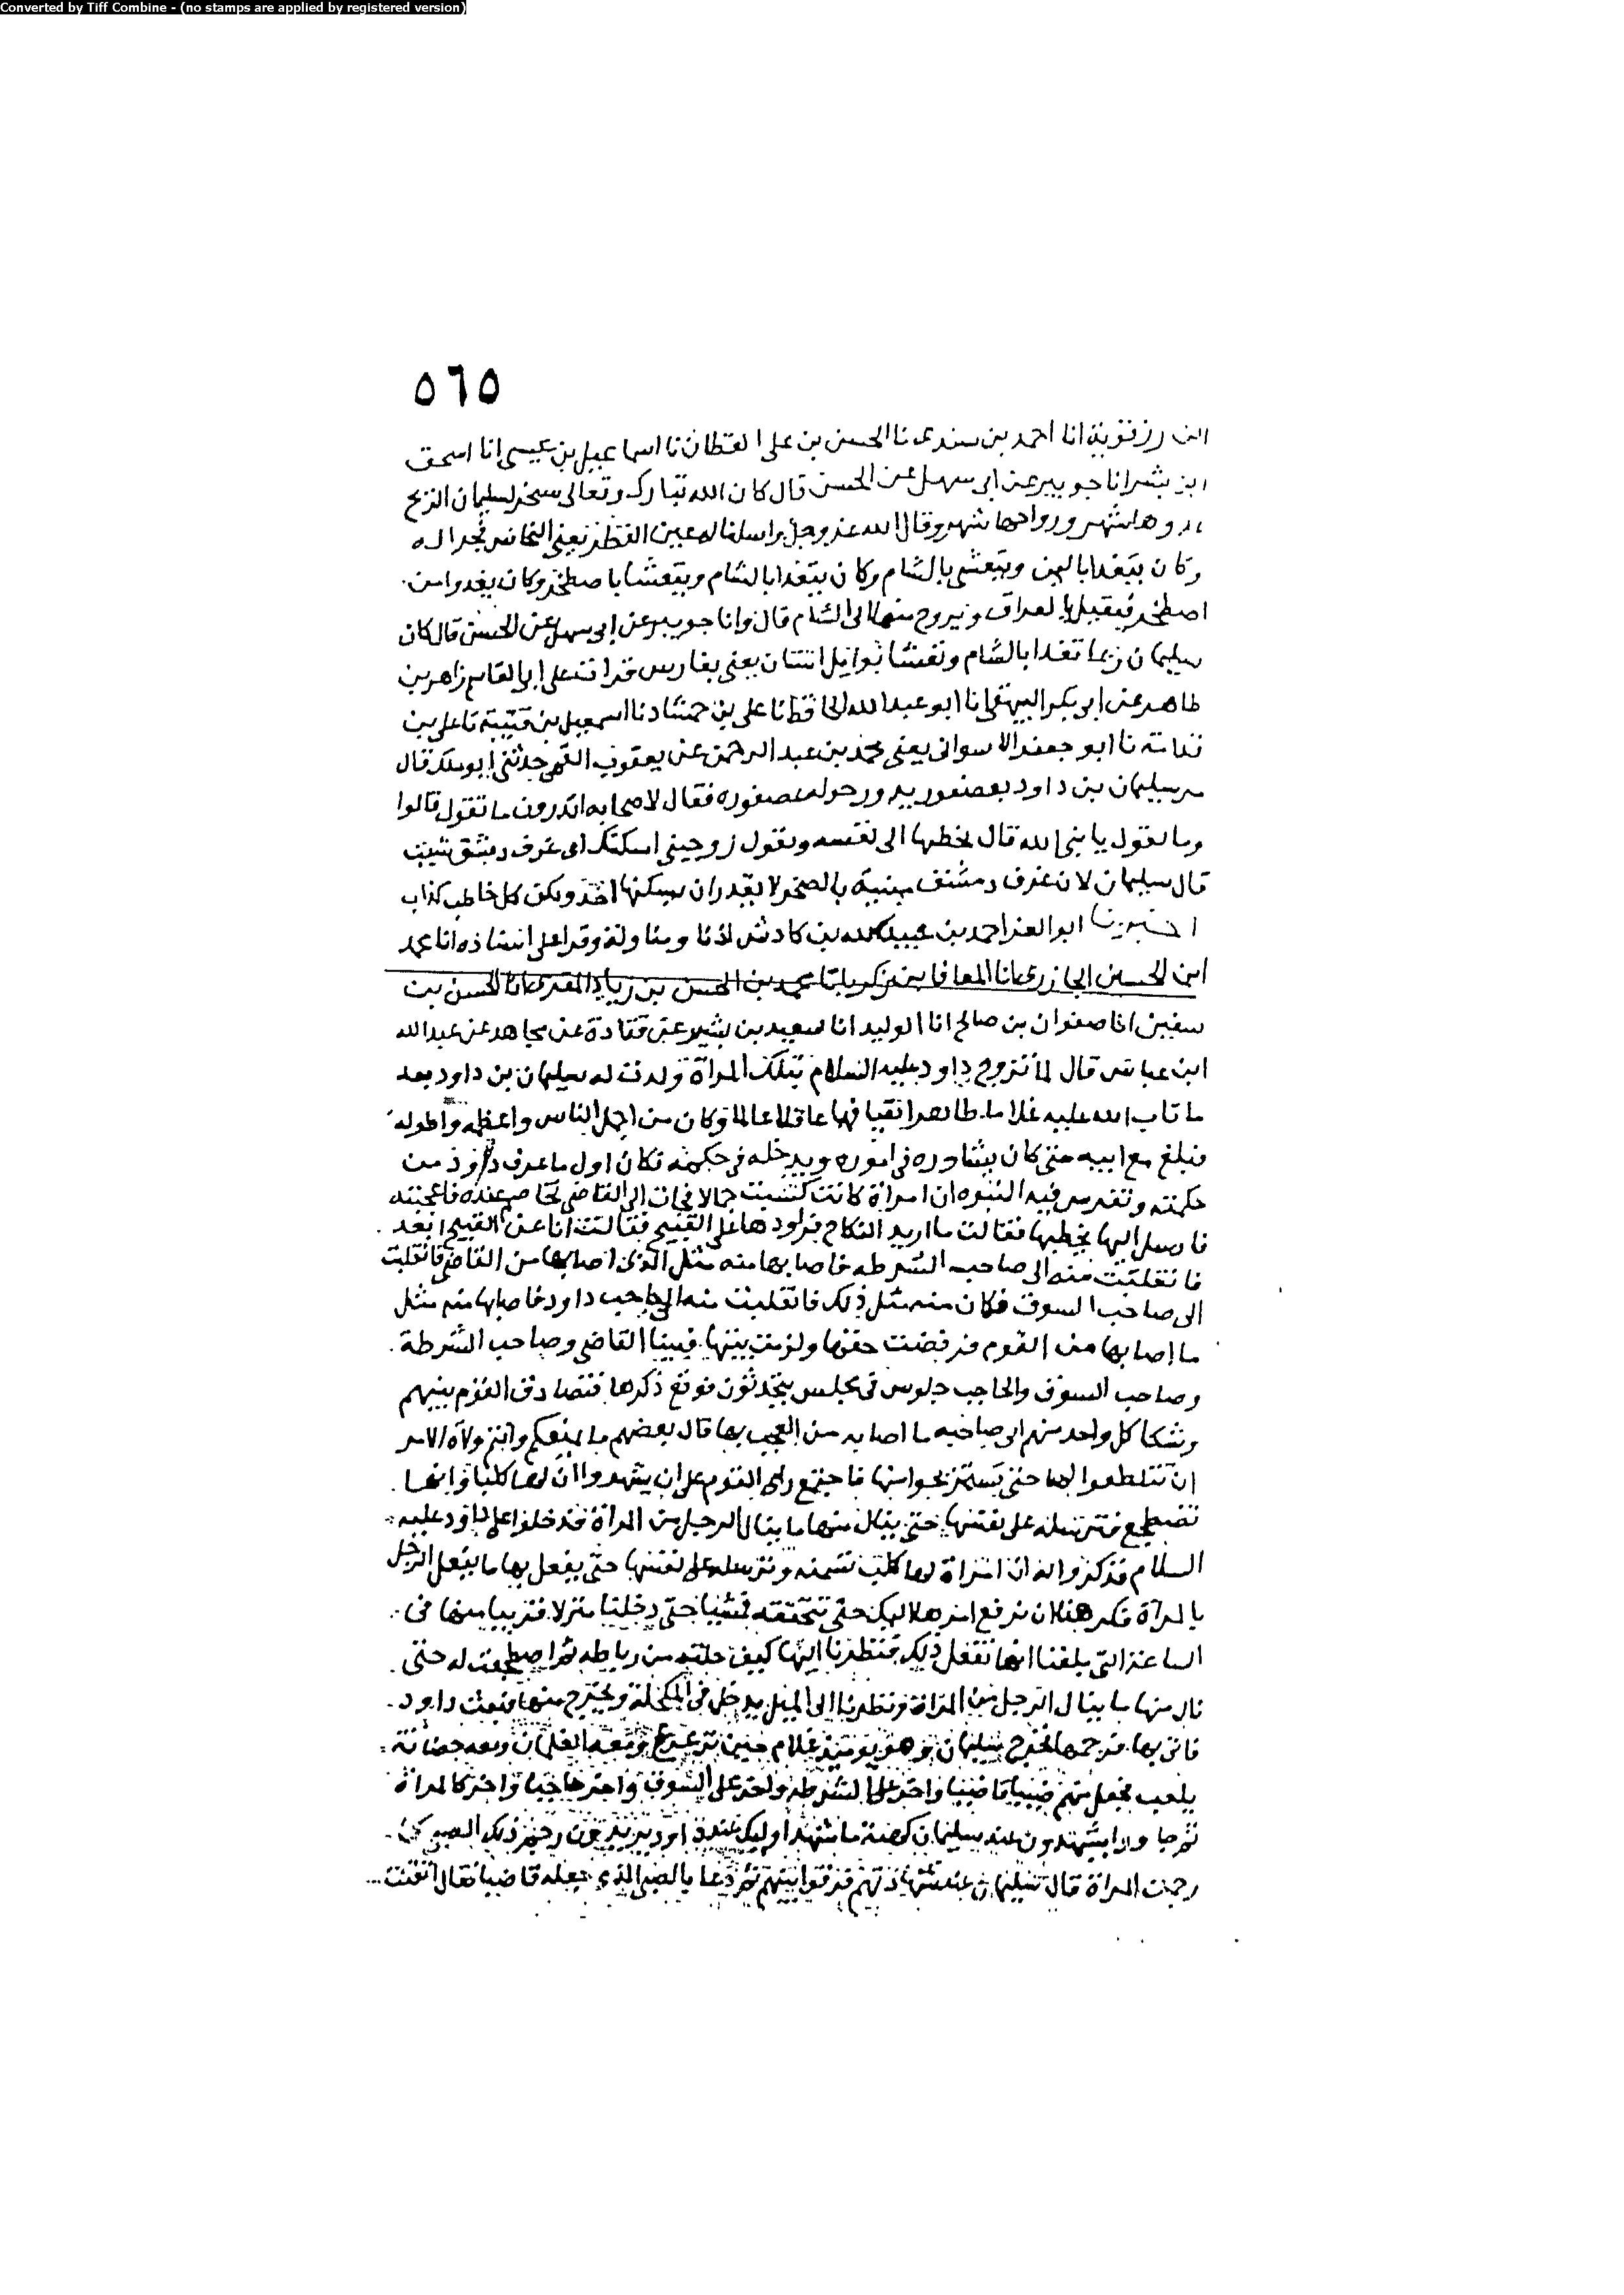 Converted by Tiff Combine - (no stamps are applied by registered version)
٥٦٥
ابن رزقويه انا احمد بن سندى نا الحسن بن على القطان نا اسماعيل بن عيسى انا اسحق
ابن بشر انا جويبر عن ابى سهل عن الحسن قال كان الله تبارك وتعالى سخر لسليمان الريح
شهر ورواحها شهر وقال الله عز وجل واسلنا له عين القطر يعنى النحاس
وكان يتغدا باليمن ويتعشى بالشام وكان يتغدا بالشام ويتعشا باصطخر وكان يغدوا من
اصطخر فيقيل بالعراق ويروح منها الى الشام قال وانا جويبر عن ابى سهل عن الحسن قال كان
سليمان ربما تغدا بالشام وتعشا يعنى بفارس قرات على ابى القاسم زاهر بن
طاهر عن ابى بكر البيهقى انا ابو عبد الله الحافظ انا على بن حمشاد نا اسمعيل بن قتيبة نا على بن
قدامة نا ابو جعفر الاسوانى يعنى محمد بن عبد الرحمن عن يعقوب القمى حدثنى ابو ملك قال
مر سليمان بن داود بعصفور يدور حول عصفوره فقال لاصحابه اتدرون ما تقول قالوا
وما تقول يا نبى الله قال يخطبها الى نفسه ويقول زوجينى اسكنك اى غرف دمشق شيت
قال سليمان لان غرف دمشق مبنية بالصخر لا يقدر ان يسكنها احد ولكن كل خاطب كذاب
اخبرنا ابو العز احمد بن عبيد الله بن كادش اذنا ومناولة وقرا على اسناده انا محمد
ابن الحسين الجازرى انا المعافا بن زكريا نا محمد بن الحسن بن زياد المقرى نا الحسن بن
سفين انا صفوان بن صالح انا الوليد انا سعيد بن بشير عن قتادة عن مجاهد عن عبد الله
ابن عباس قال لما تزوج داود عليه السلام بتلك المراة ولدت له سليمان بن داود بعد
ما تاب الله عليه غلاما طاهرا نقيا فهما عاقلا عالما وكان من اجمل الناس واعظمه واطوله
فبلغ مع ابيه حتى كان يشاوره فى اموره ويدخله فى حكمته فكان اول ما عرف داوود من
حكمته وتفرس فيه النبوه ان امراة كانت كسيت جمالا فجات الى القاضى تخاصم عنده فاعجبته
فارسل اليها يخطبها فقالت ما اريد النكاح فراودها على القبيح فقالت انا عن القبيح ابعد
فانقلبت منه الى صاحب الشرطه فاصابها منه مثل الذى اصابها من القاضى فانقلبت
الى صاحب السوق فكان منه مثل ذلك فانقلبت منه الى حاجب داود فاصابها منه مثل
ما اصابها من القوم فرفضت حقها ولزمت بيتها فبينا القاضى وصاحب الشرطة
وصاحب السوق والحاجب جلوس فى مجلس يتحدثون فوقع ذكرها فتصادق القوم بينهم
وشكا كل واحد منهم الى صاحبه ما اصابه من العجب بها قال بعضهم ما يمنعكم وانتم ولاة الامر
ان تتلطفوا لها حتى تستريحوا منها فاجتمع راى القوم على ان يشهدوا ان لها كلبا وانها
تضطجع فترسله على نفسها حتى ينال منها ما ينال الرجل من المراة فدخلوا على داود عليه
السلام فذكروا له ان امراة لها كلب تسمنه وترسله على نفسها حتى يفعل بها ما يفعل الرجل
بالمراة فكرهنا ان نرفع امرها اليك حتى نتحققه فمشينا حتى دخلنا منزلا قريبا منها فى
الساعة التى بلغنا انها تفعل ذلك فنظرنا اليها كيف حلته من رباطه ثم اضطجعت له حتى
نال منها ما ينال الرجل من المراة ونظرنا الى الميل يدخل فى المكحلة ويخرج منها فبعث داود
فاتى بها فرجمها فخرج سليمان وهو يومئذ غلام حين ترعرع ومعه الغلمان ومعه حصانه
يلعب فجعل منهم صبيا قاضيا واخر على الشرطه واخر على السوق واخر حاجبا واخر كالمراة
ثم جاوا يشهدون عند سليمان كهيئة ما شهد اوليك عند داود يريدون رجم ذلك الصبى كما
رجمت المراة قال سليمان عند شهادتهم فرقوا بينهم ثم دعا بالصبى الذى جعله قاضيا فقال اتقنت